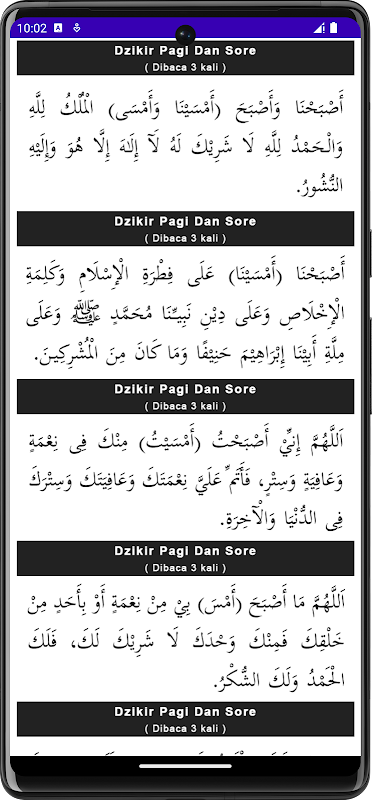 10:02
Dzikir Pagi Dan Sore
( Dibaca 3 kali )
أَصْبَحْنَا وَأَصْبَحَ (أَمْسَيْنَا وَأَمْسَى) الْمُلْكُ لِلَّهِ
وَالْحَمْدُ لِلَّهِ لَا شَرِيْكَ لَهُ لَآ إِلٰهَ إِلَّا هُوَ وَإِلَيْهِ
النُّشُورُ.
Dzikir Pagi Dan Sore
( Dibaca 3 kali )
أَصْبَحْنَا (أَمْسَيْنَا) عَلَى فِطْرَةِ الْإِسْلَامِ وَكَلِمَةِ
الْإِخْلَاصِ وَعَلَى دِيْنِ نَبِيِّنَا مُحَمَّدٍ ﷺ وَعَلَى
مِلَّةِ أَبِيْنَا إِبْرَاهِيْمَ حَنِيْفًا وَمَا كَانَ مِنَ الْمُشْرِكِينَ.
Dzikir Pagi Dan Sore
( Dibaca 3 kali )
اَللَّهُمَّ إِنِّيْ أَصْبَحْتُ (أَمْسَيْتُ) مِنْكَ فِى نِعْمَةٍ
وَعَافِيَةٍ وَسِتْرٍ، فَأَتِمَّ عَلَيَّ نِعْمَتَكَ وَعَافِيَتَكَ وَسِتْرَكَ
فِى الدُّنْيَا وَالْآخِرَةِ.
Dzikir Pagi Dan Sore
( Dibaca 3 kali )
اَللَّهُمَّ مَا أَصْبَحَ (أَمْسَ) بِيْ مِنْ نِعْمَةٍ أَوْ بِأَحَدٍ مِنْ
خَلْقِكَ فَمِنْكَ وَحْدَكَ لَا شَرِيْكَ لَكَ، فَلَكَ
الْحَمْدُ وَلَكَ الشُّكْرُ.
Dzikir Pagi Dan Sore
( Dibaca 3 kali )